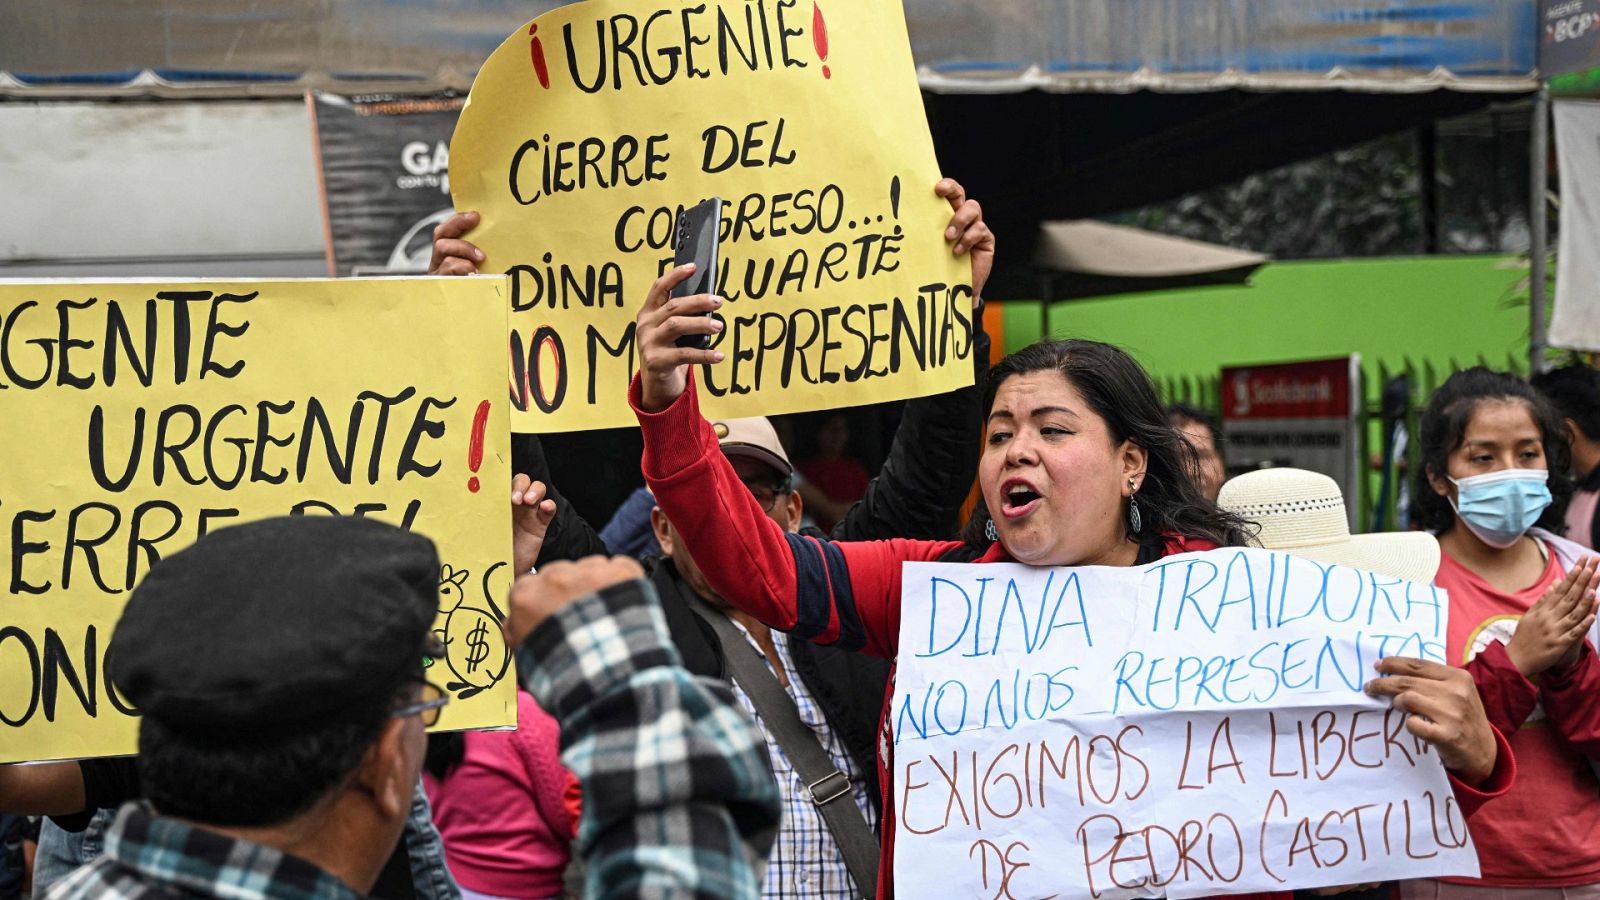 ¡URGENTE!
CIERRE DEL
CONGRESO...!
DINA BOLUARTE
NO ME REPRESENTAS
URGENTE
URGENTE!
CIERRE DEL
$
DINA TRAIDORA
NO NOS REPRESENTAS
EXIGIMOS LA LIBERTAD
DE PEDRO CASTILLO
Scotiabank
AGENTE
BCP
GA
CON TU